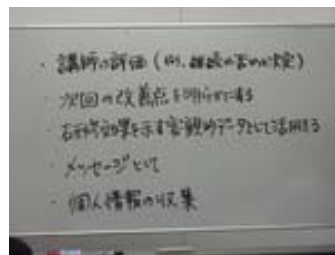 ・講師の評価（例、継続の否の決定）
・次回の改善点を明らかにする
・研修効果を示す客観的データとして活用する
・メッセージとして
・個人情報の収集